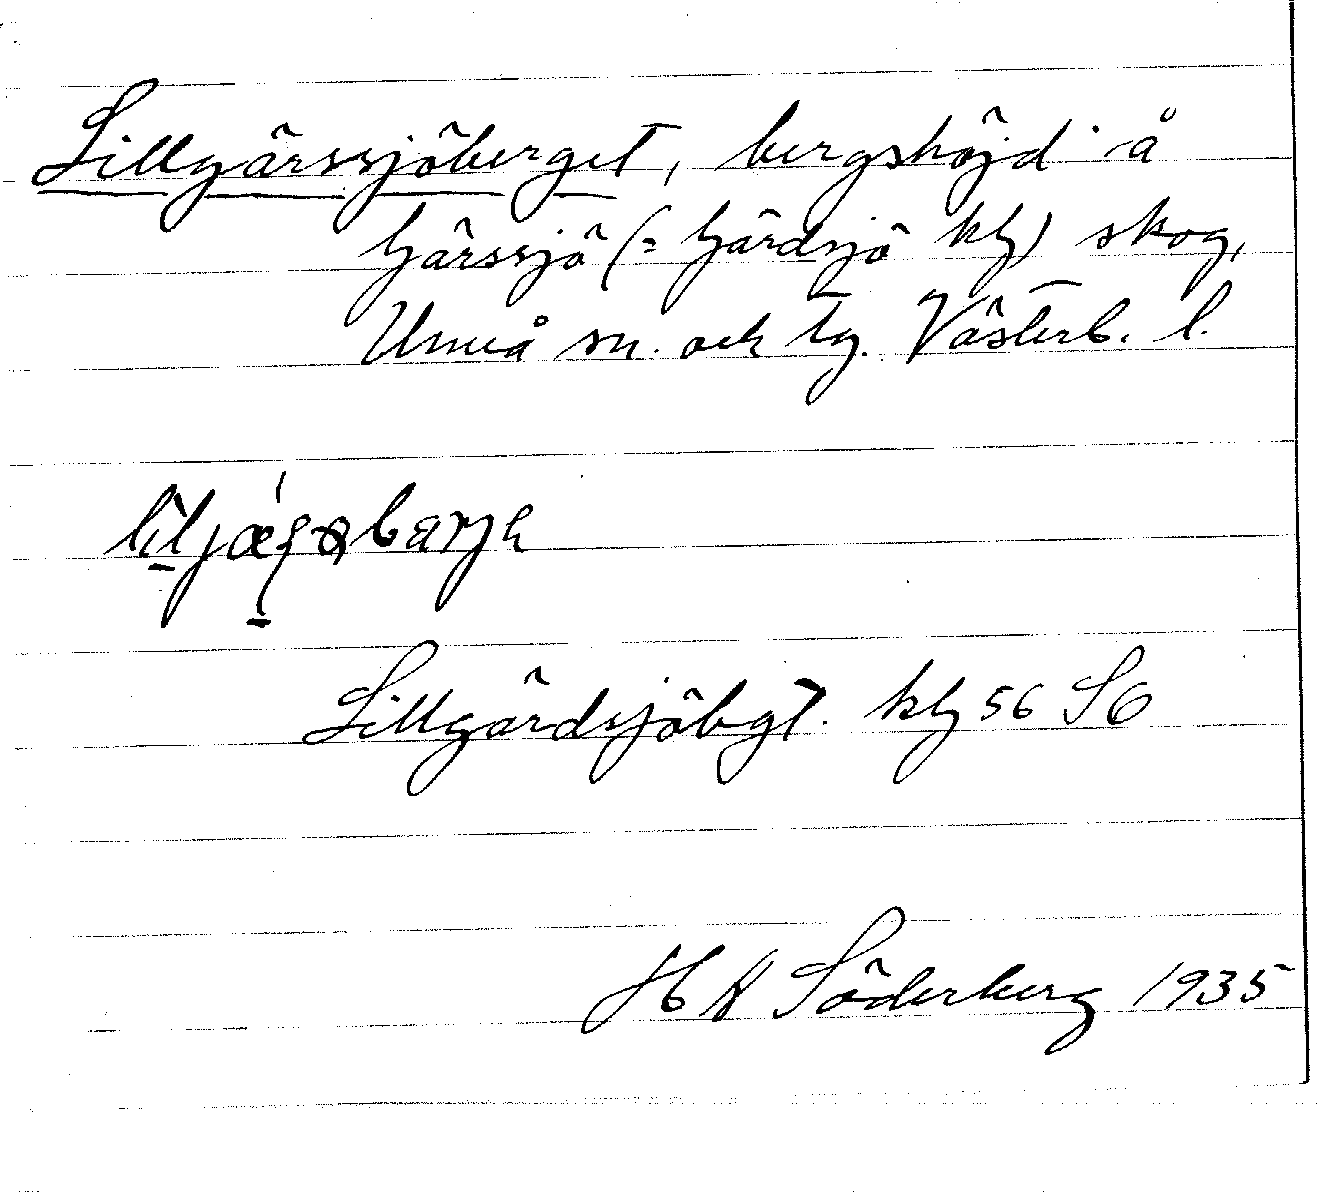 Lillgärssjöberget, bergshöjd å
Gärssjö (= Gärdsjö kbg) skog,
Umeå sn. och tg. Västerb. l.
Lillgärdsjöbgt. kbg 56 SO
H A Söderberg 1935